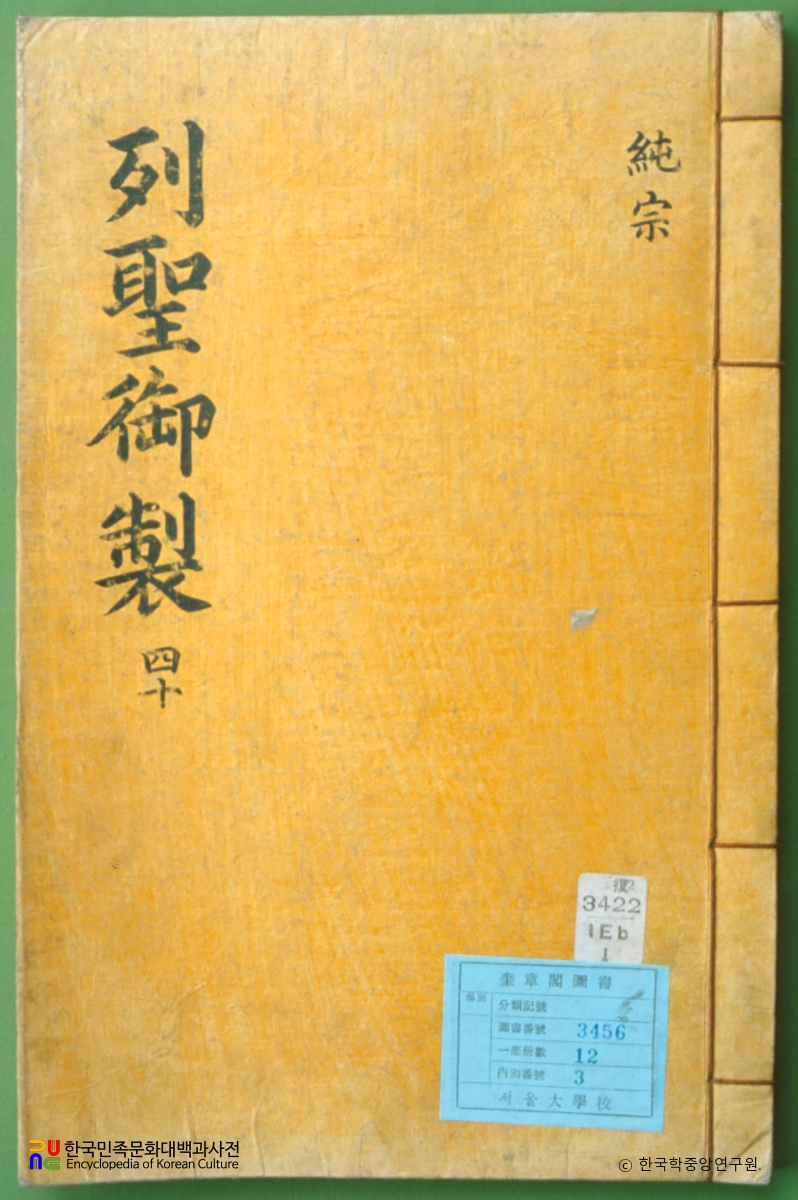 純宗
列聖御製
四十
3422
1Eb
1
奎章閣圖書
部別
分類記號
圖書番號 3456
一部冊數 12
內別番號 3
서울大學校
한국민족문화대백과사전
Encyclopedia of Korean Culture
© 한국학중앙연구원.